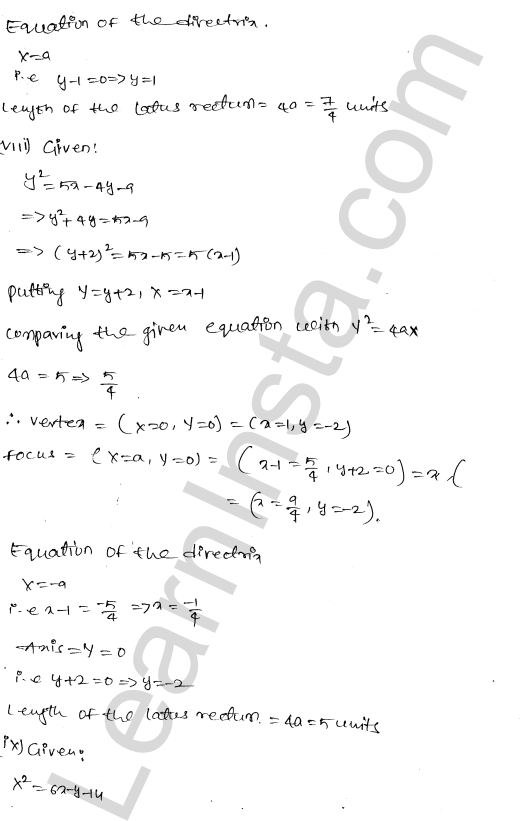 Equation of the directrix.
x=a
i.e y-1=0=>y=1
Length of the latus rectum= 4a = 7/4 units
(viii) Given:
y²=5x-4y-9
=>y²+4y=5x-9
=> (y+2)²=5x-5=5(x-1)
putting Y=y+2, X=x-1
comparing the given equation with Y²=4ax
4a=5=> 5/4
∴ vertex = (X=0, Y=0) = (x=1, y=-2)
focus = (X=a, Y=0) = (x-1=5/4, y+2=0)=x (
= (x=9/4, y=-2).
Equation of the directrix
X=-a
i.e x-1 = -5/4 =>x = -1/4
Axis=Y=0
i.e y+2=0=>y=-2
Length of the latus rectum. =4a=5 units
ix) Given:
x²=6x-y-14
LearnInsta.com